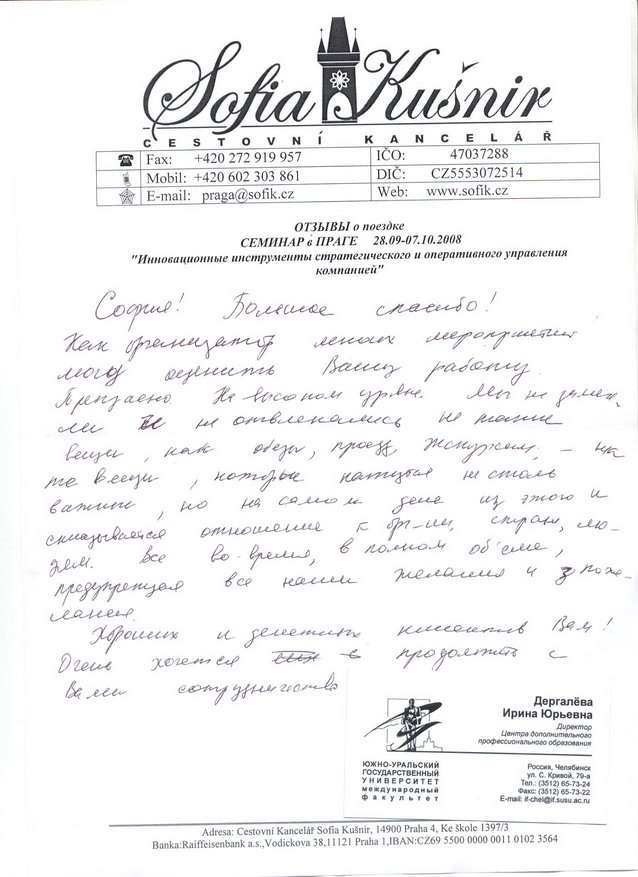 Sofia Kušnir
CESTOVNÍ KANCELÁŘ
Fax: +420 272 919 957 IČO: 47037288
Mobil: +420 602 303 861 DIČ: CZ5553072514
E-mail: praga@sofik.cz Web: www.sofik.cz
ОТЗЫВЫ о поездке
СЕМИНАР в ПРАГЕ 28.09-07.10.2008
"Инновационные инструменты стратегического и оперативного управления
компанией"
София! Большое спасибо!
Как организатор многих мероприятий
могу оценить Вашу работу.
Прекрасно. На высоком уровне. Мы не замеча-
ли и не отвлекались на такие
вещи, как обеды, проезд, экскурсии, – на
те вещи, которые кажутся не столь
важны, но на самом деле из этого и
складывается отношение к орг-ии, стране, лю-
дям. Все во-время, в полном объеме,
предупреждая все наши желания и поже-
лания.
Хороших и денежных клиентов Вам!
Очень хочется продолжить с
Вами сотрудничество
Дергалёва
Ирина Юрьевна
Директор
Центра дополнительного
профессионального образования
ЮЖНО-УРАЛЬСКИЙ
ГОСУДАРСТВЕННЫЙ
УНИВЕРСИТЕТ
международный
факультет
Россия, Челябинск
ул. С. Кривой, 79-а
Тел.: (3512) 65-73-24
Факс: (3512) 65-73-22
E-mail: if-chel@if.susu.ac.ru
Adresa: Cestovní Kancelář Sofia Kušnir, 14900 Praha 4, Ke škole 1397/3
Banka:Raiffeisenbank a.s.,Vodickova 38,11121 Praha 1,IBAN:CZ69 5500 0000 0011 0102 3564